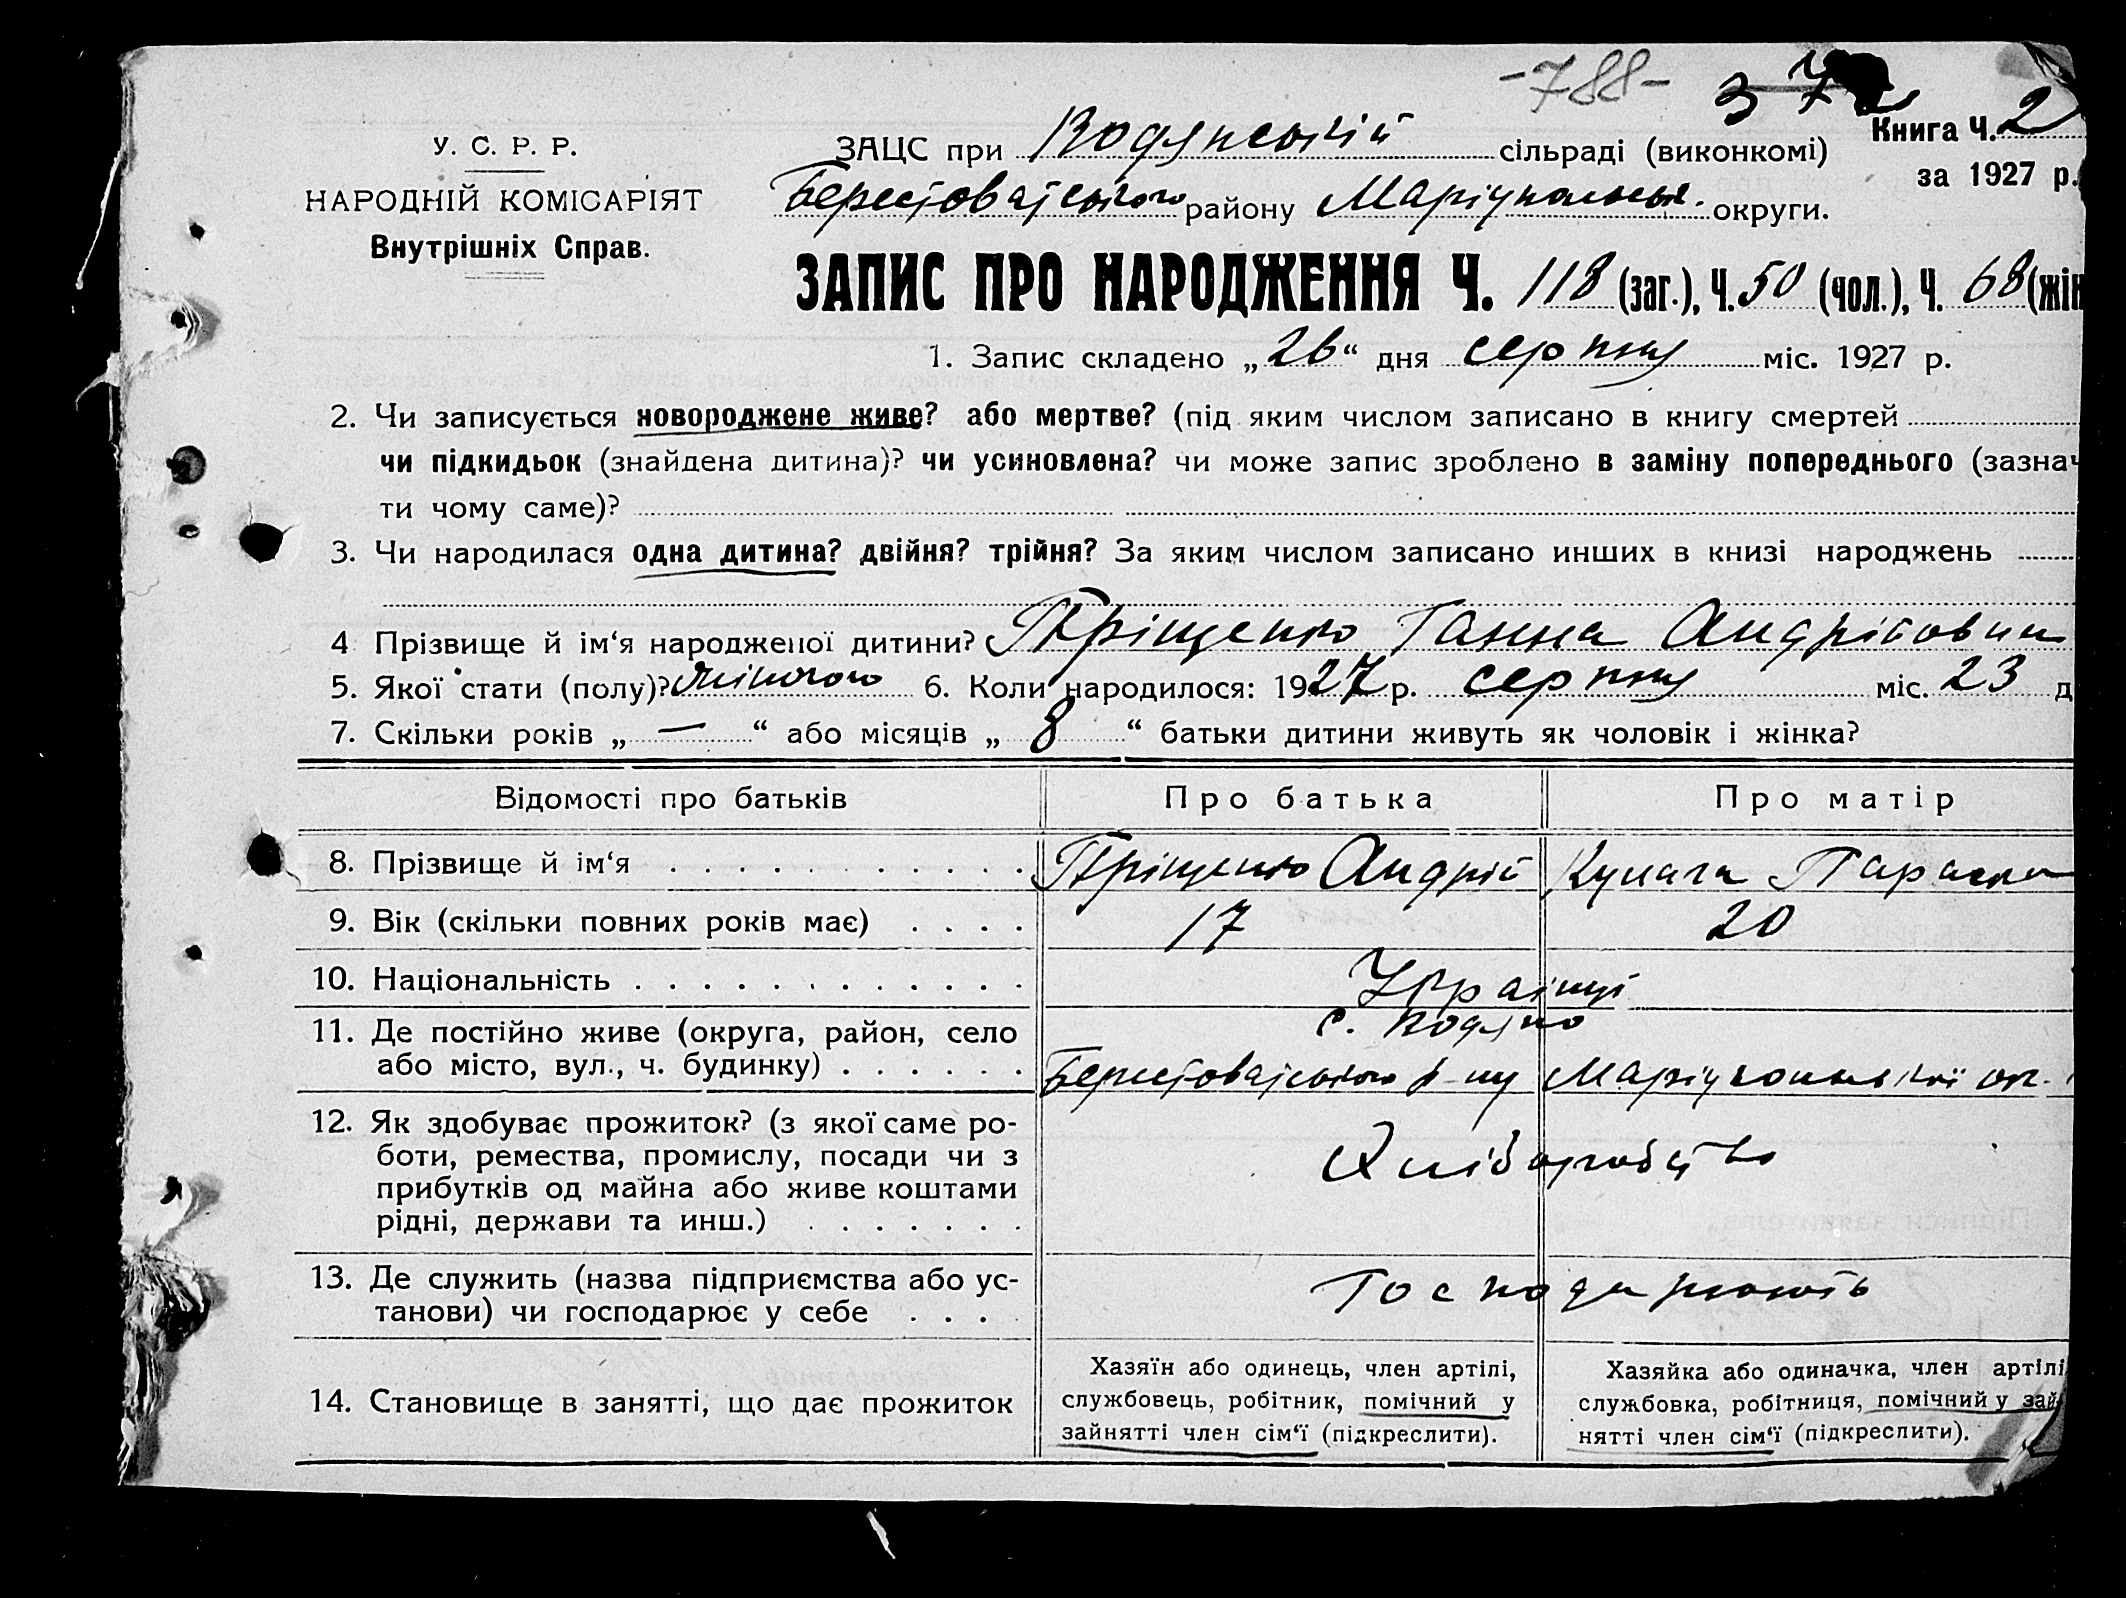 -788-
3
У. С. Р. Р.
НАРОДНІЙ КОМІСАРІЯТ
Внутрішніх Справ.
ЗАЦС при Водянській сільраді (виконкомі)
Книга Ч. 2
за 1927 р.
Берестоватського району Маріупольськ. округи.
ЗАПИС ПРО НАРОДЖЕННЯ Ч. 118 (заг.), Ч. 50 (чол.), Ч. 68 (жін
1. Запис складено „26“ дня серпня міс. 1927 р.
2. Чи записується новороджене живе? або мертве? (під яким числом записано в книгу смертей
чи підкидьок (знайдена дитина)? чи усиновлена? чи може запис зроблено в заміну попереднього (зазнач
ти чому саме)?
3. Чи народилася одна дитина? двійня? трійня? За яким числом записано инших в книзі народжень
4 Прізвище й ім‘я народженої дитини? Ганна Андріївни
5. Якої стати (полу)? жіночого 6. Коли народилося: 1927 р. серпня міс. 23 д
7. Скільки років „ — “ або місяців „ 8 “ батьки дитини живуть як чоловік і жінка?
Відомості про батьків Про батька Про матір
8. Прізвище й ім‘я Андрій Параска
9. Вік (скільки повних років має) 17 20
10. Національність Українці
11. Де постійно живе (округа, район, село с. Водяно
або місто, вул., ч. будинку) Берестоватського р-ну Маріупольської ок.
12. Як здобуває прожиток? (з якої саме ро-
боти, ремества, промислу, посади чи з Хліборобство
прибутків од майна або живе коштами
рідні, держави та инш.)
13. Де служить (назва підприємства або ус- Господарюють
танови) чи господарює у себе
14. Становище в занятті, що дає прожиток
Хазяїн або одинець, член артілі,
службовець, робітник, помічний у
зайнятті член сім‘ї (підкреслити).
Хазяйка або одиначка, член артілі
службовка, робітниця, помічний у зай-
нятті член сім‘ї (підкреслити).